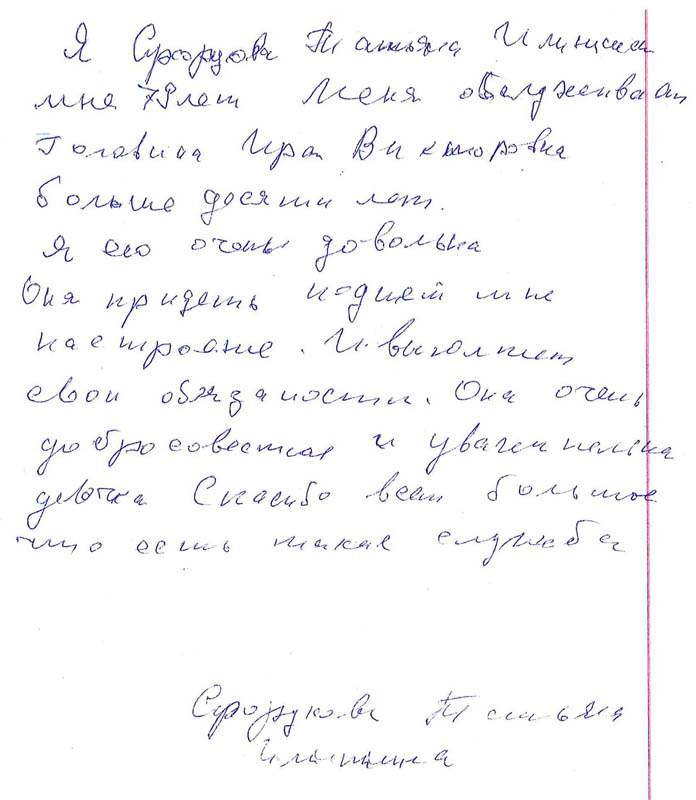 Я Татьяна
мне 79 лет Меня обслуживает
Головина Ира Викторовна
больше десяти лет.
Я ею очень довольна
Она придеть поднмет мне
настроэние. И выполнит
свои обязаности. Она очень
добросовестная и уважительна
девочка Спасибо всем большое
что есть такая служба
Татьяна